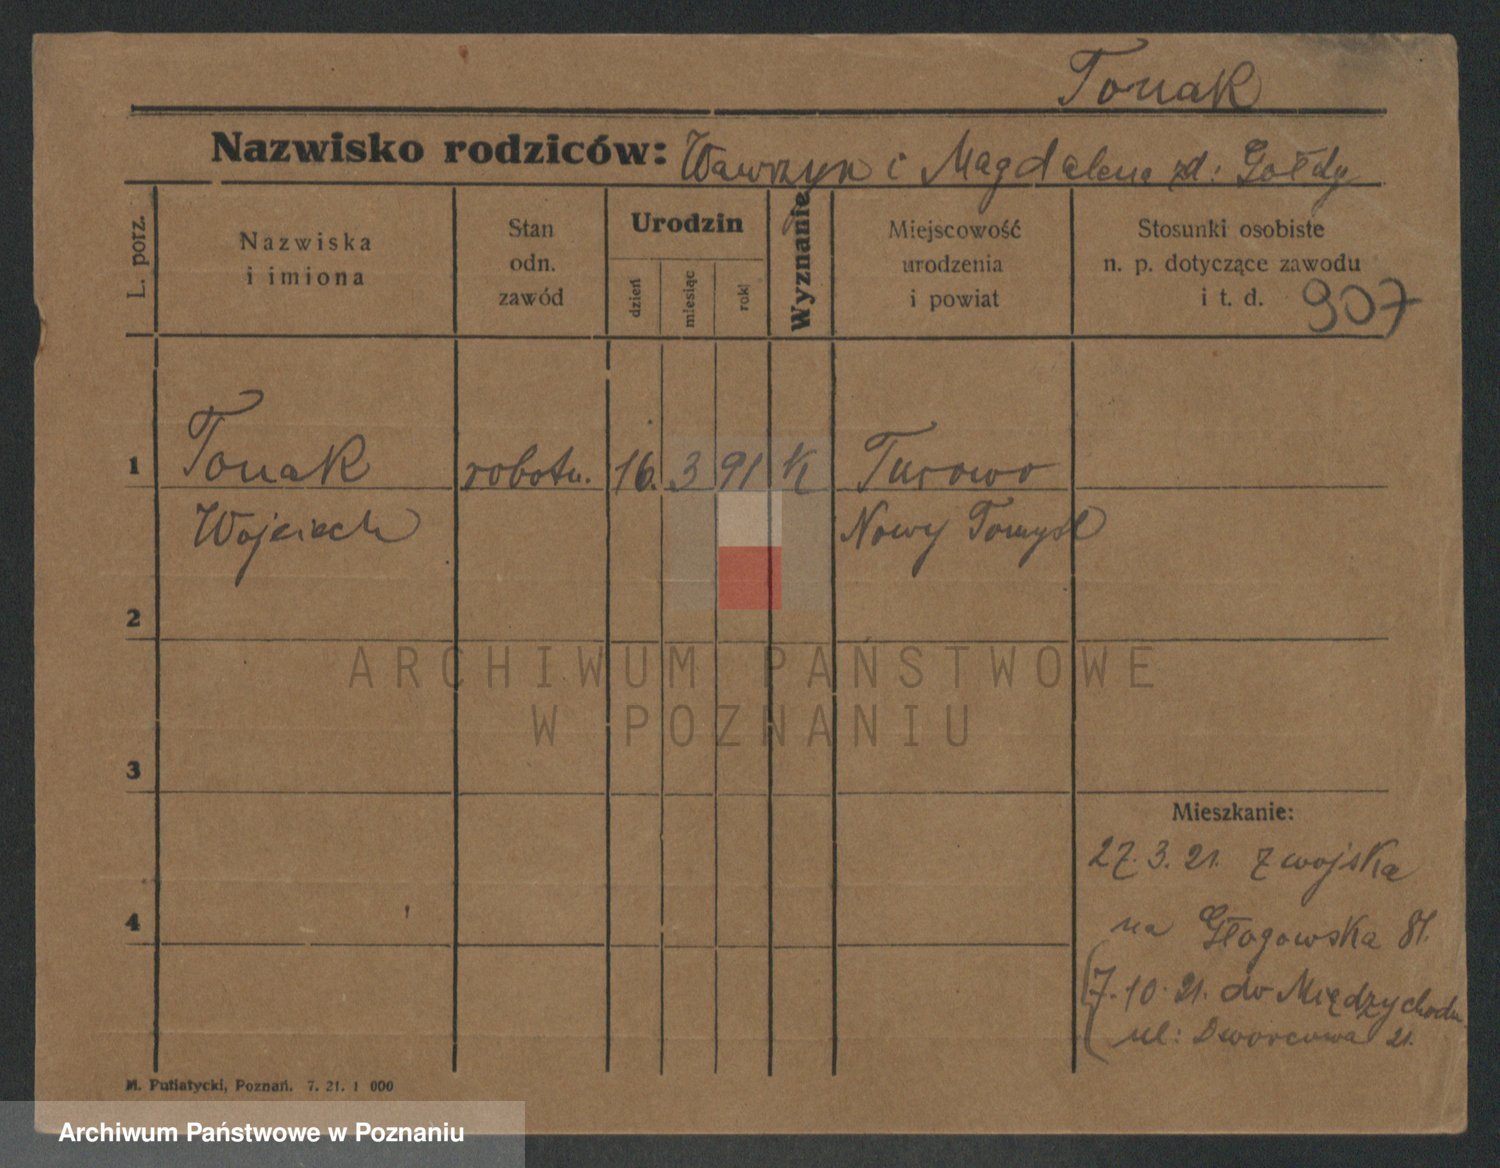 Tonak
Nazwisko rodziców: Wawrzyn i Magdalena zd: Gołdy
L. porz.
Nazwiska
i imiona
Stan
odn.
zawód
Urodzin
dzień
miesiąc
rok
Wyznanie
Miejscowość
urodzenia
i powiat
Stosunki osobiste
n. p. dotyczące zawodu
i t. d.
907
1 Tonak robotn. 16. 3 91 K Turowo
Wojciech Nowy Tomysl
2
ARCHIWUM PAŃSTWOWE
W POZNANIU
3
Mieszkanie:
27.3.21. z wojska
4
na Głogowska 81.
7.10.21. do Międzychodu
ul: Dworcowa 21.
M. Putiatycki, Poznań. 7. 21. 1 000
Archiwum Państwowe w Poznaniu